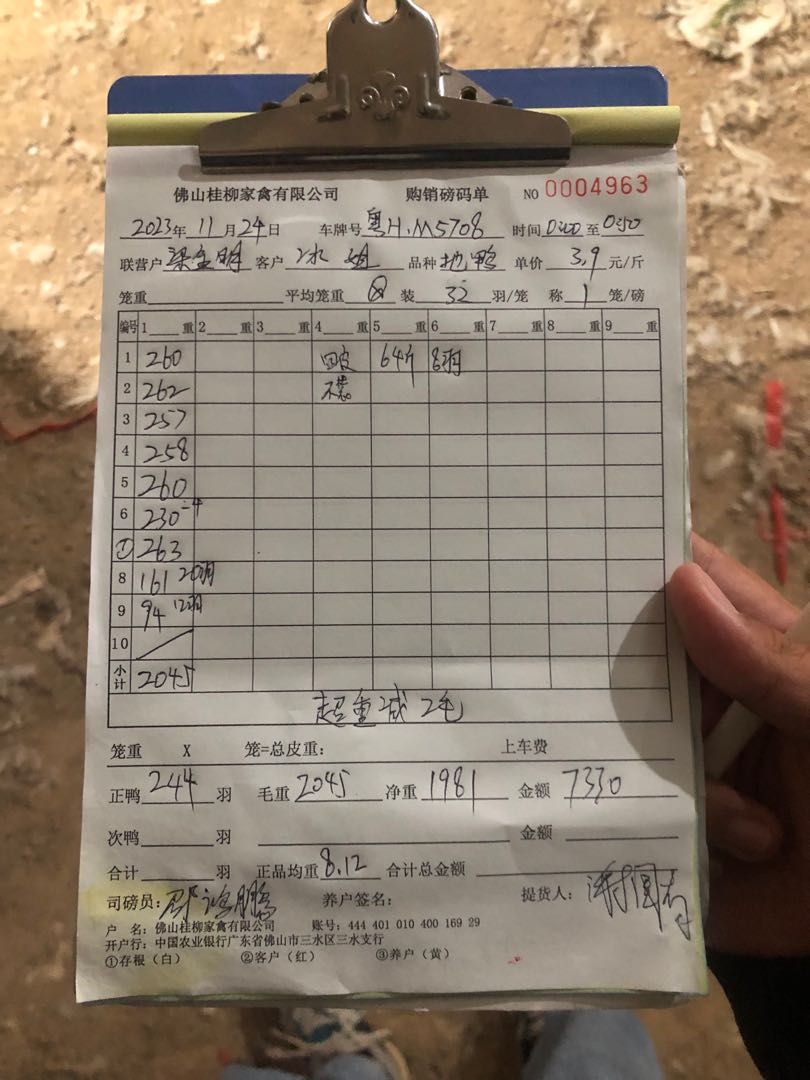 佛山桂柳家禽有限公司 购销磅码单 NO 0004963
2023年 11月24日 车牌号 粤H.M5708 时间 至
联营户 梁金明 客户 冰姐 品种 地鸭 单价 3.9 元/斤
笼重 平均笼重 装 32 羽/笼 称 1 笼/磅
编号 1 重 2 重 3 重 4 重 5 重 6 重 7 重 8 重 9 重
1 260 回皮 64斤 8羽
2 262 不装
3 257
4 258
5 260
6 230-4
7 263
8 161 20羽
9 94 12羽
10
小计 2045
超重减2毛
笼重 X 笼=总皮重: 上车费
正鸭 244 羽 毛重 2045 净重 1981 金额 7330
次鸭 羽 金额
合计 羽 正品均重 8.12 合计总金额
司磅员: 鸿鹏 养户签名: 提货人:
户 名: 佛山桂柳家禽有限公司 账号: 444 401 010 400 169 29
开户行: 中国农业银行广东省佛山市三水区三水支行
①存根(白) ②客户(红) ③养户(黄)